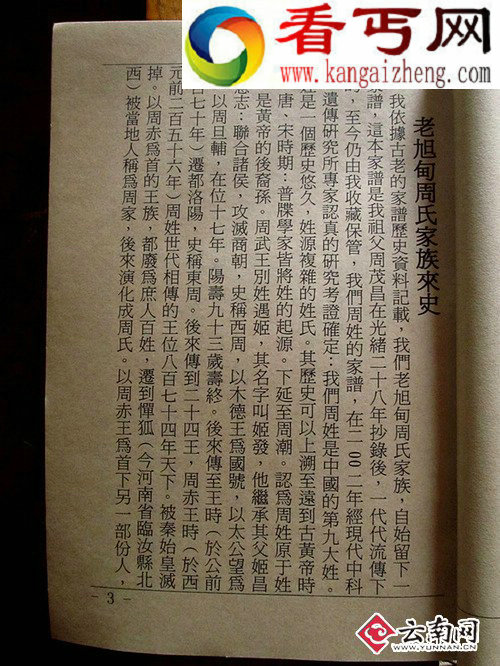 看丐网
www.kangaizheng.com
老旭甸周氏家族來史
我依據古老的家譜歷史資料記載，我們老旭甸周氏家族，自始留下一
家譜，這本家譜是我祖父周茂昌在光緒二十八年抄錄後，一代代流傳下
，至今仍由我收藏保管，我們周姓的家譜，在二00二年經現代中科
遺傳研究所專家認真的研究考證確定：我們周姓是中國的第九大姓。
姓是一個歷史悠久，姓源複雜的姓氏。其歷史可以上溯至遠到古黃帝時
唐、宋時期：普牒學家皆將姓的起源。下延至周潮。認爲周姓原于姓
是黃帝的後裔孫。周武王別姓遇姬，其名字叫姬發，他繼承其父姬昌
志：聯合諸侯，攻滅商朝，史稱西周，以木德王爲國號，以太公望爲
以周旦輔，在位十七年。陽壽九十三歲壽終。後來傳至王時（於公前
七十年）遷都洛陽，史稱東周。後來傳到二十四王，周赤王時（於西
元前二百五十六年）周姓世代相傳的王位八百七十四年天下。被秦始皇滅
掉。以周赤爲首的王族，都廢爲庶人百姓，遷到憚狐（今河南省臨汝縣北
西）被當地人稱爲周家，後來演化成周氏。以周赤王爲首下另一部份人，
- 3 -
云南网
WWW.YUNNAN.CN